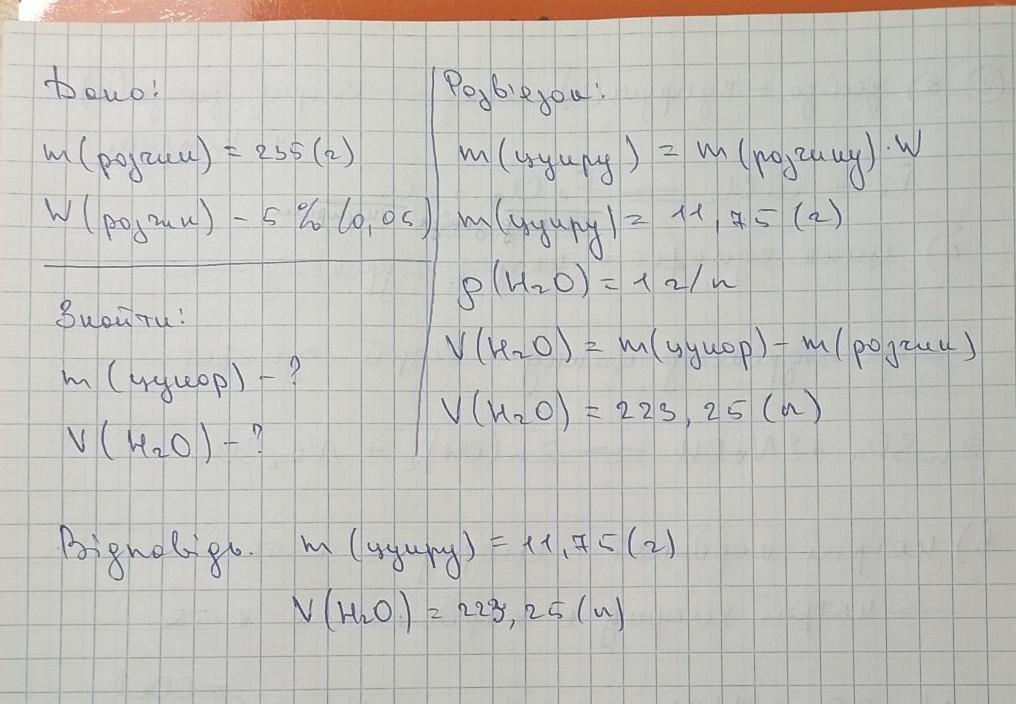 Дано:
m(розчин) = 235(г)
W(розчин) – 5 % (0,05)
Знайти:
m (цукор) – ?
V(H₂O) – ?
Розв'язок:
m(цукру) = m(розчину)·W
m(цукру) = 11,75(г)
ρ(H₂O) = 1 г/л
V(H₂O) = m(цукор) – m(розчин)
V(H₂O) = 223,25(л)
Відповідь. m (цукру) = 11,75(г)
V(H₂O) = 223,25(л)